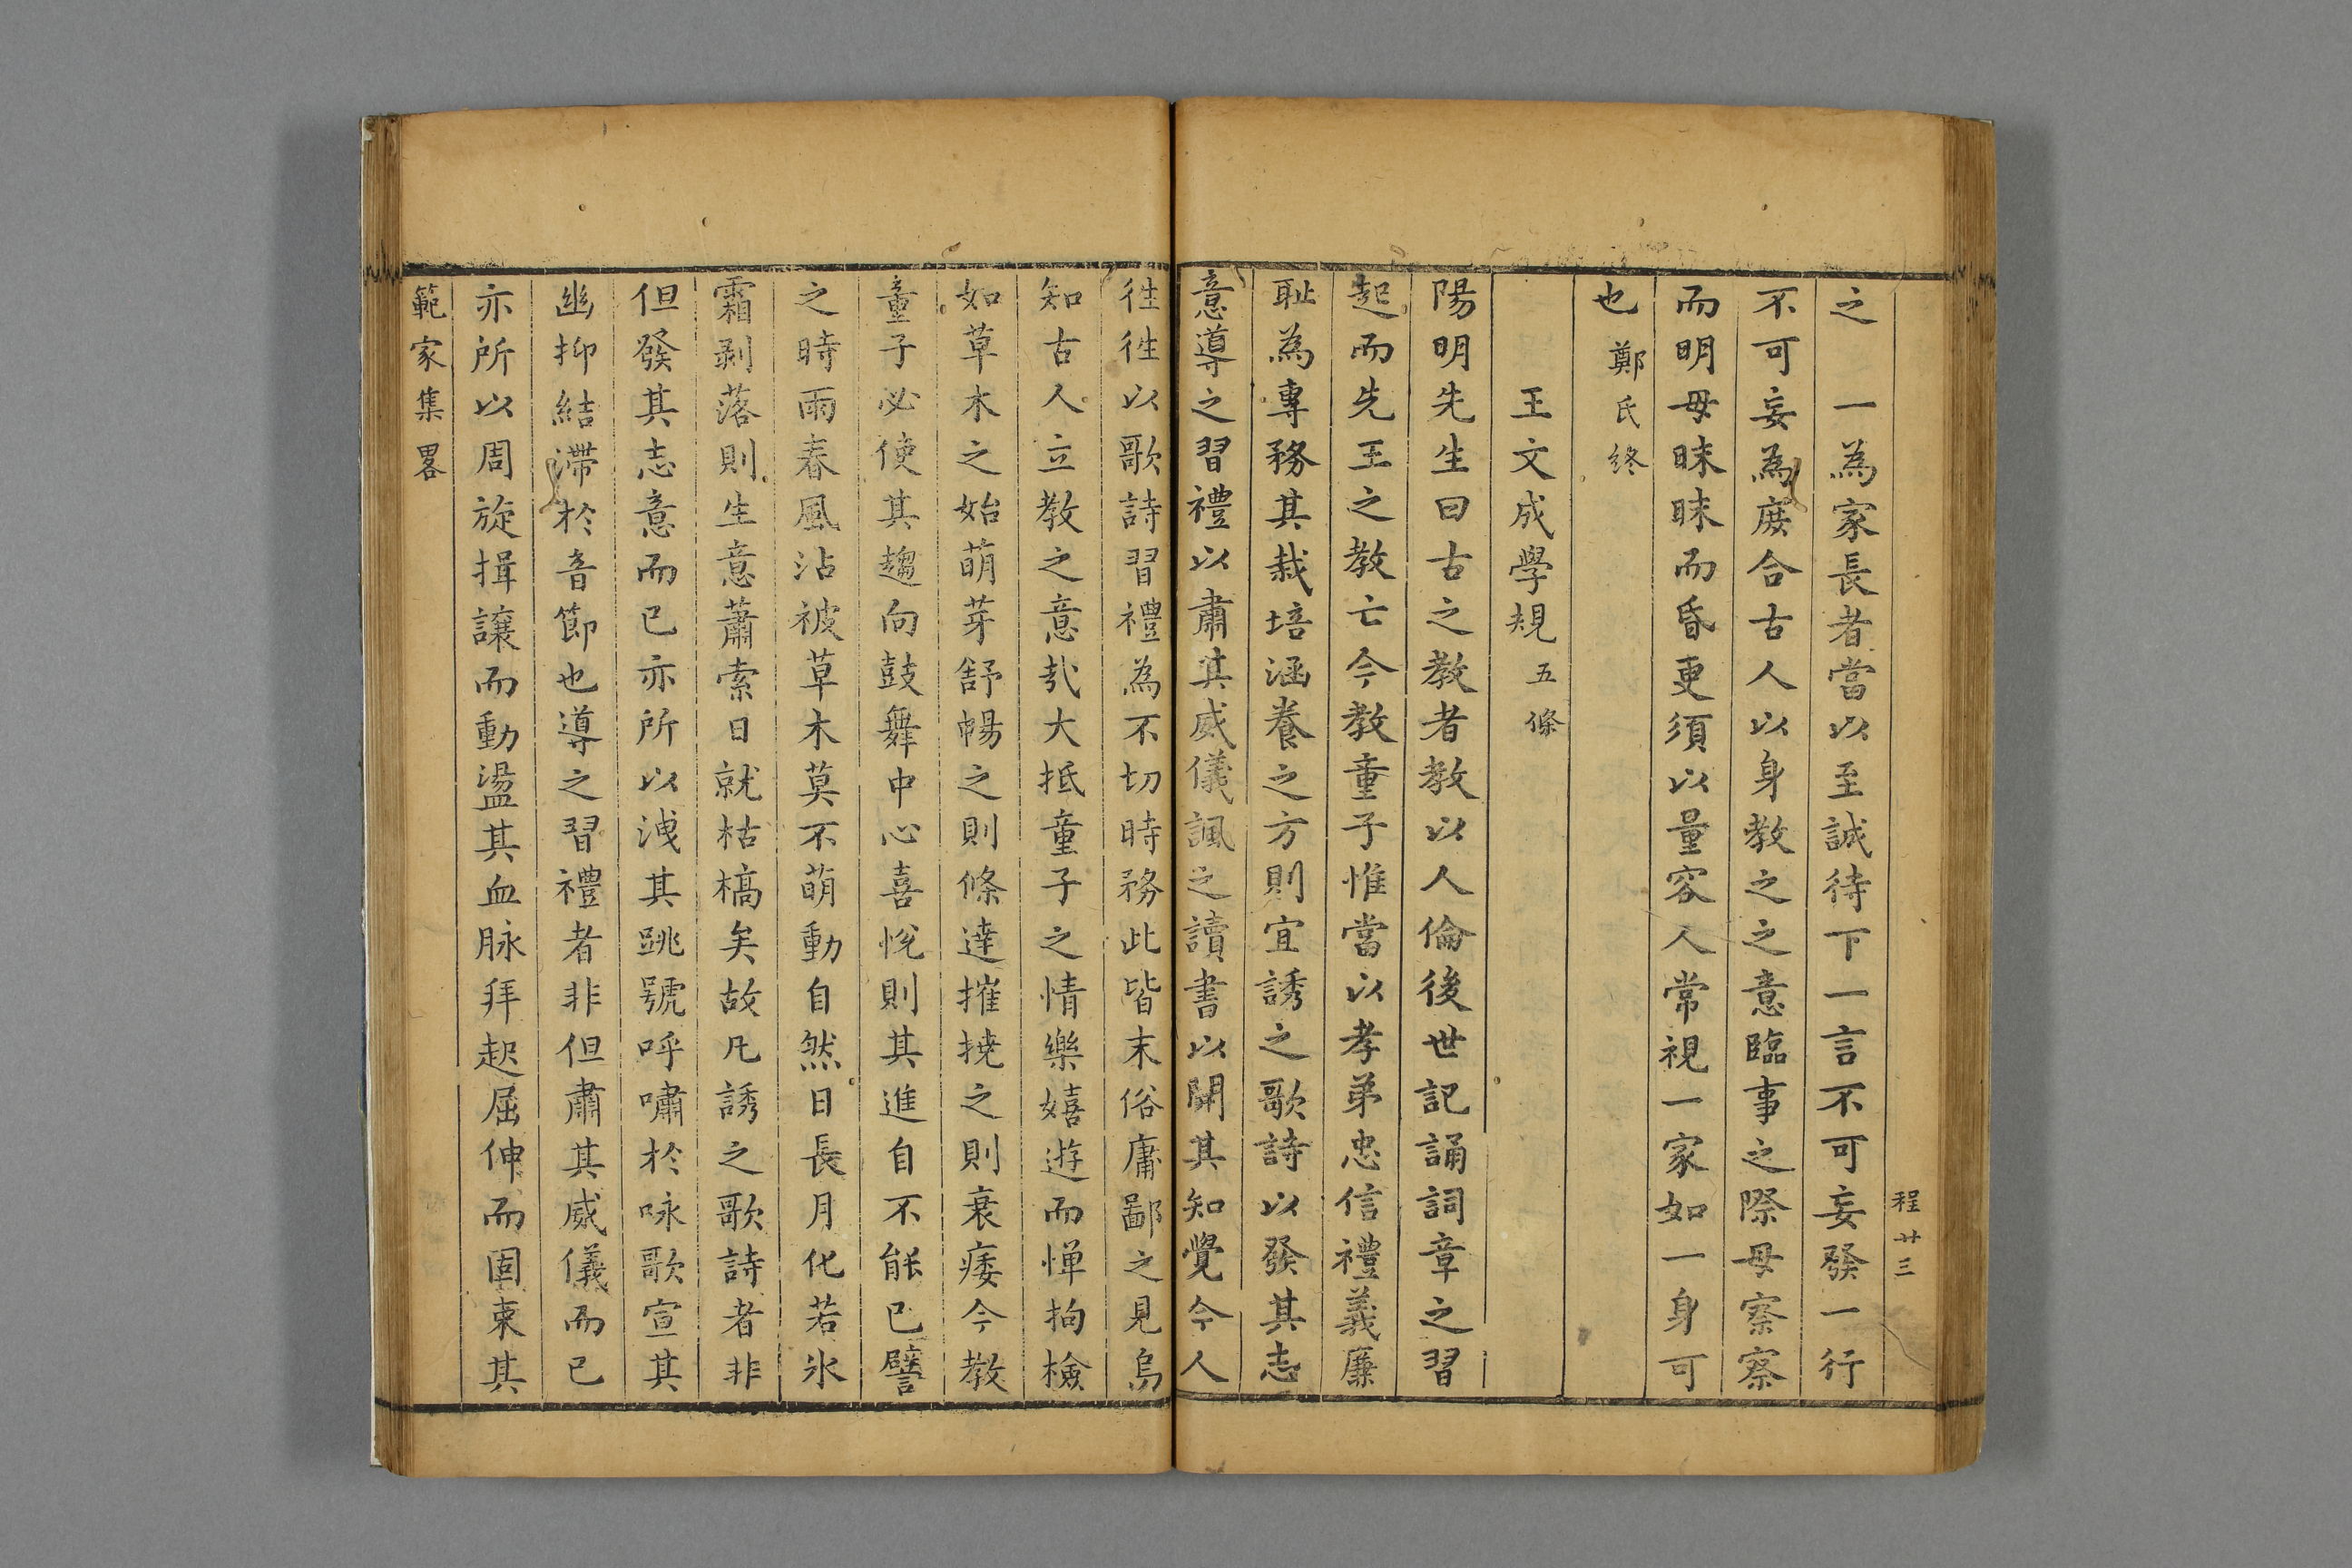 程 廿三
之　一為家長者當以至誠待下一言不可妄發一行
不可妄為庻合古人以身教之之意臨事之際毋察察
而明毋昧昧而昏更須以量容人常視一家如一身可
也 鄭氏終
王文成學規 五條
陽明先生曰古之教者教以人倫後世記誦詞章之習
起而先王之教亡今教童子惟當以孝弟忠信禮義廉
耻為專務其栽培涵養之方則宜誘之歌詩以發其志
意導之習禮以肅其威儀諷之讀書以開其知覺今人
徃徃以歌詩習禮為不切時務此皆末俗庸鄙之見烏
知古人立教之意㢤大抵童子之情樂嬉遊而惮拘檢
如草木之始萌芽舒暢之則條達摧撓之則衰痿今教
童子必使其趨向鼓舞中心喜悅則其進自不能已譬
之時雨春風沾被草木莫不萌動自然日長月化若氷
霜剥落則生意蕭索日就枯槁矣故凡誘之歌詩者非
但發其志意而已亦所以洩其跳號呼嘯於咏歌宣其
幽抑結滯於音節也導之習禮者非但肅其威儀而已
亦所以周旋揖讓而動盪其血脉拜起屈伸而固束其
範家集畧